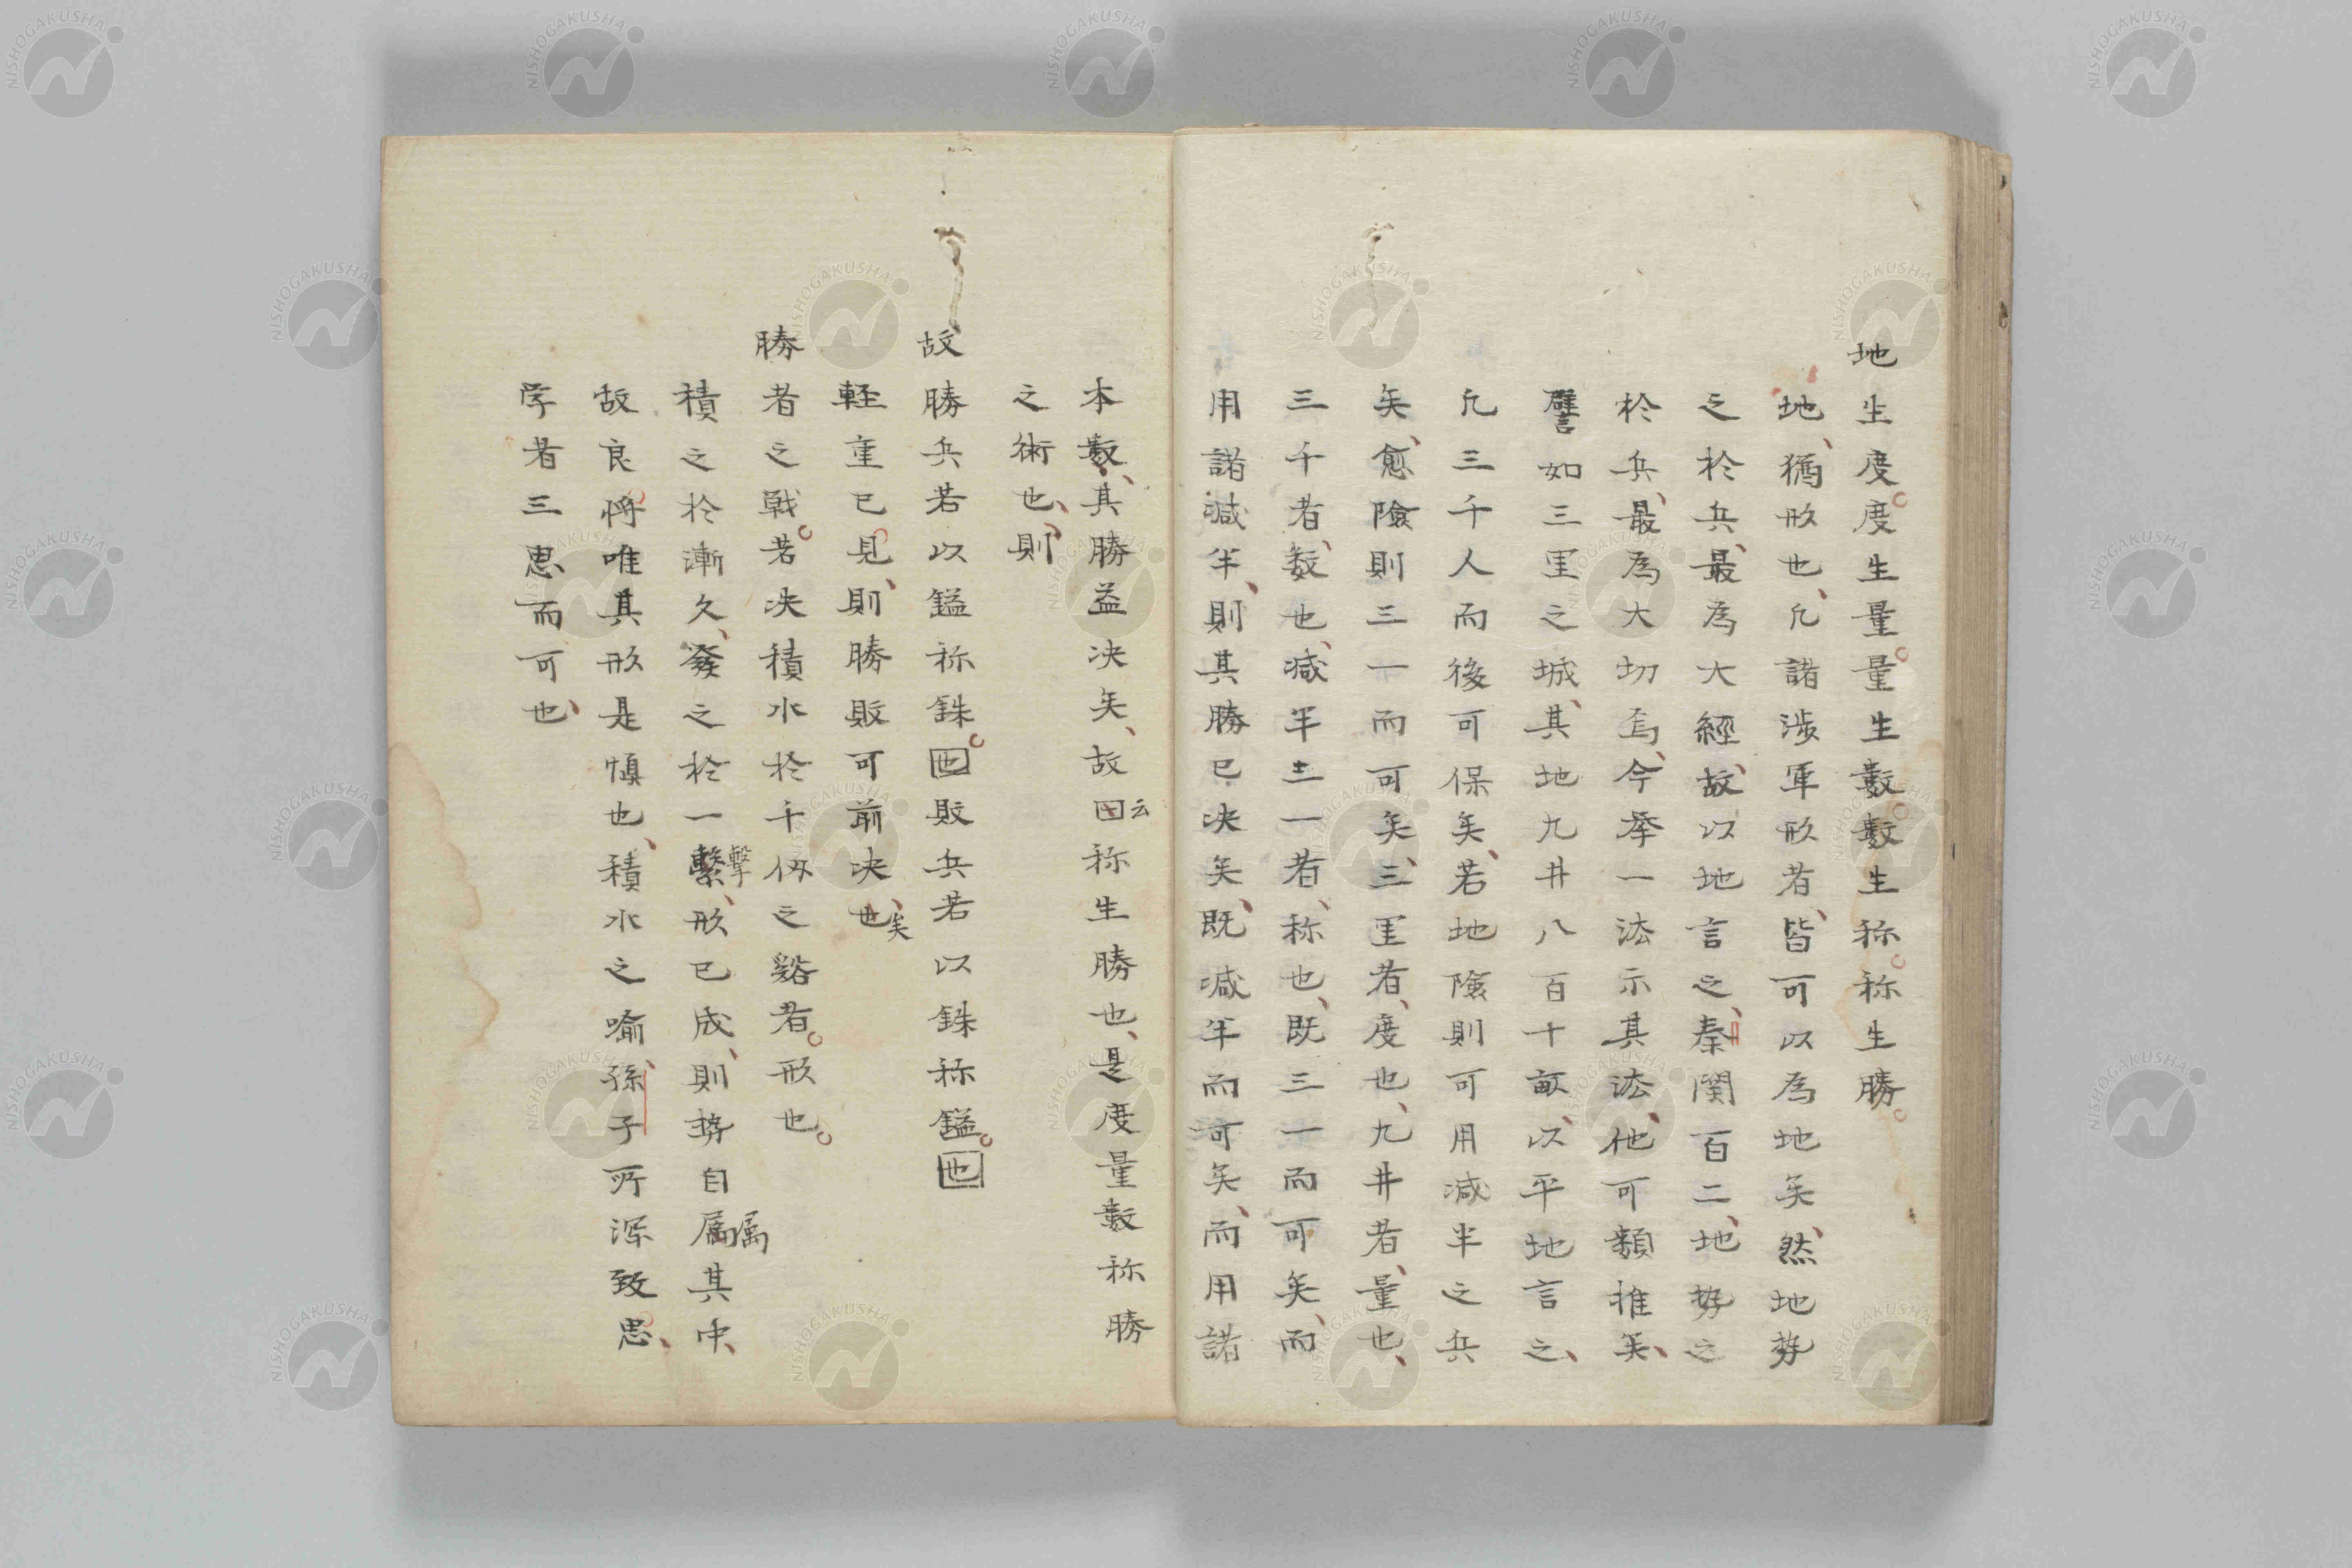 地生度度生量量生數數生称称生勝
地猶形也凡諸渉軍形者皆可以為地矣然地勢
之於兵最為大經故以地言之秦関百二地勢之
於兵最為大切焉今挙一法示其法他可類推矣
譬如三里之城其地九井八百十畝以平地言之
凡三千人而後可保矣若地険則可用減半之兵
矣愈險則三一而可矣三里者度也九井者量也
三千者数也減半三一者称也既三一而可矣而
用諸減半則其勝已决矣既減半而可矣而用諸
本數其勝益决矣故曰云称生勝也是度量數称勝
之術也則
故勝兵若以鎰称銖也敗兵若以銖称鎰也
軽重已見則勝敗可前决也矣
勝者之戦若决積水於千仭之谿者形也
積之於漸久發之於一繫擊形已成則勢自属属其中
故良将唯其形是慎也積水之喻孫子所深致思
学者三思而可也
NISHOGAKUSHA